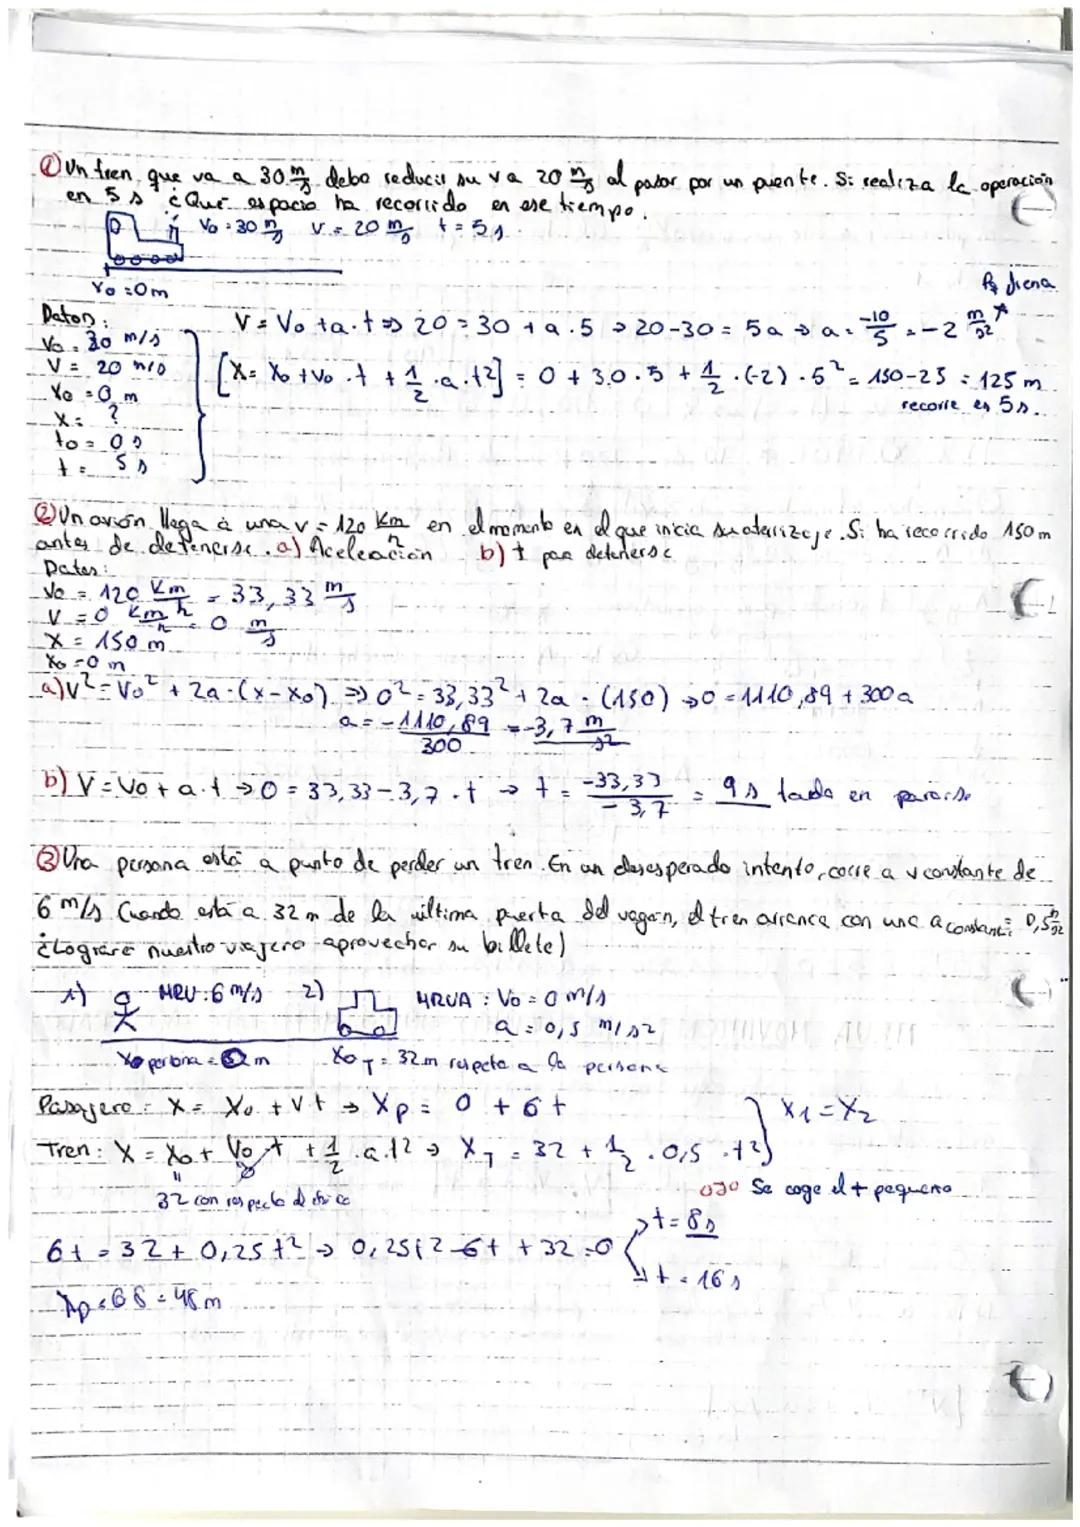 ① Un tren, que va a 30 m/s debe reducir su v a 20 m/s al pasar por un puente. Si realiza la operación
en 5 s ¿Qué espacio ha recorrido en ese tiempo.
V₀ = 30 m/s V = 20 m/s t = 5 s
X₀ = 0 m
Pq frena
Datos:
V₀ = 30 m/s
V = 20 m/s
X₀ = 0 m
X = ?
t₀ = 0 s
t = 5 s
V = V₀ + a·t ⇒ 20 = 30 + a·5 → 20-30 = 5a → a = -10/5 = -2 m/s²
[X = X₀ + V₀·t + 1/2·a·t²] = 0 + 30·5 + 1/2·(-2)·5² = 150-25 = 125 m
recorre en 5 s.
② Un avión llega a una v = 120 Km/h en el momento en el que inicia su aterrizaje. Si ha recorrido 150 m
antes de detenerse. a) Aceleación b) t para detenerse
Datos:
V₀ = 120 Km/h = 33,33 m/s
V = 0 Km/h = 0 m/s
X = 150 m
X₀ = 0 m
a) V² = V₀² + 2a·(x-x₀) ⇒ 0² = 33,33² + 2a·(150) → 0 = 1110,89 + 300a
a = -1110,89/300 = -3,7 m/s²
b) V = V₀ + a·t → 0 = 33,33-3,7·t → t = -33,33/-3,7 = 9 s tarda en pararse
③ Una persona está a punto de perder un tren. En un desesperado intento, corre a v constante de
6 m/s Cuando está a 32 m de la última puerta del vagón, el tren arranca con una a constante = 0,5 m/s²
¿Lograre nuestro viajero aprovechar su billete)
1) MRU: 6 m/s 2) MRUA: V₀ = 0 m/s
a = 0,5 m/s²
X₀ persona = 0 m X₀T = 32 m respecto a la persona
Pasajero: X = X₀ + V t → Xp = 0 + 6t
X₁ = X₂
Tren: X = X₀ + V₀·t + 1/2·a·t² → XT = 32 + 1/2·0,5·t²
0
32 con respecto al
ojo Se coge el t pequeño
6t = 32 + 0,25 t² → 0,25t²-6t + 32 = 0
t = 8 s
t = 16 s
Xp = 6·8 = 48 m